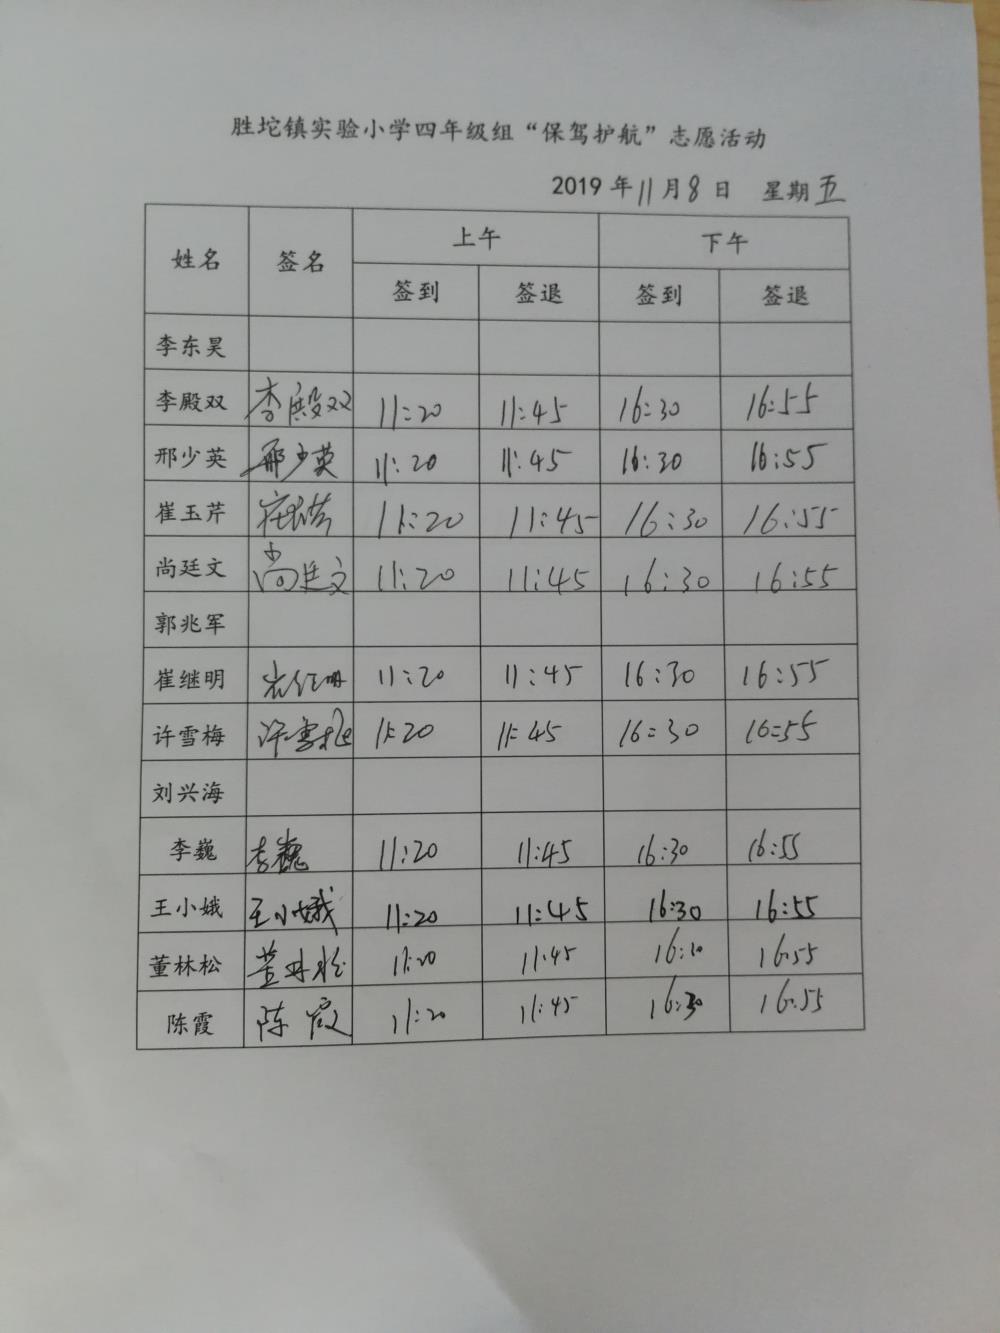 胜坨镇实验小学四年级组“保驾护航”志愿活动
2019 年 11 月 8 日 星期 五
姓名 签名 上午 下午
签到 签退 签到 签退
李东昊
李殿双 李殿双 11:20 11:45 16:30 16:55
邢少英 邢少英 11:20 11:45 16:30 16:55
崔玉芹 11:20 11:45 16:30 16:55
尚廷文 尚廷文 11:20 11:45 16:30 16:55
郭兆军
崔继明 崔继明 11:20 11:45 16:30 16:55
许雪梅 许雪梅 11:20 11:45 16:30 16:55
刘兴海
李巍 李巍 11:20 11:45 16:30 16:55
王小娥 王小娥 11:20 11:45 16:30 16:55
董林松 董林松 11:20 11:45 16:30 16:55
陈霞 陈霞 11:20 11:45 16:30 16:55